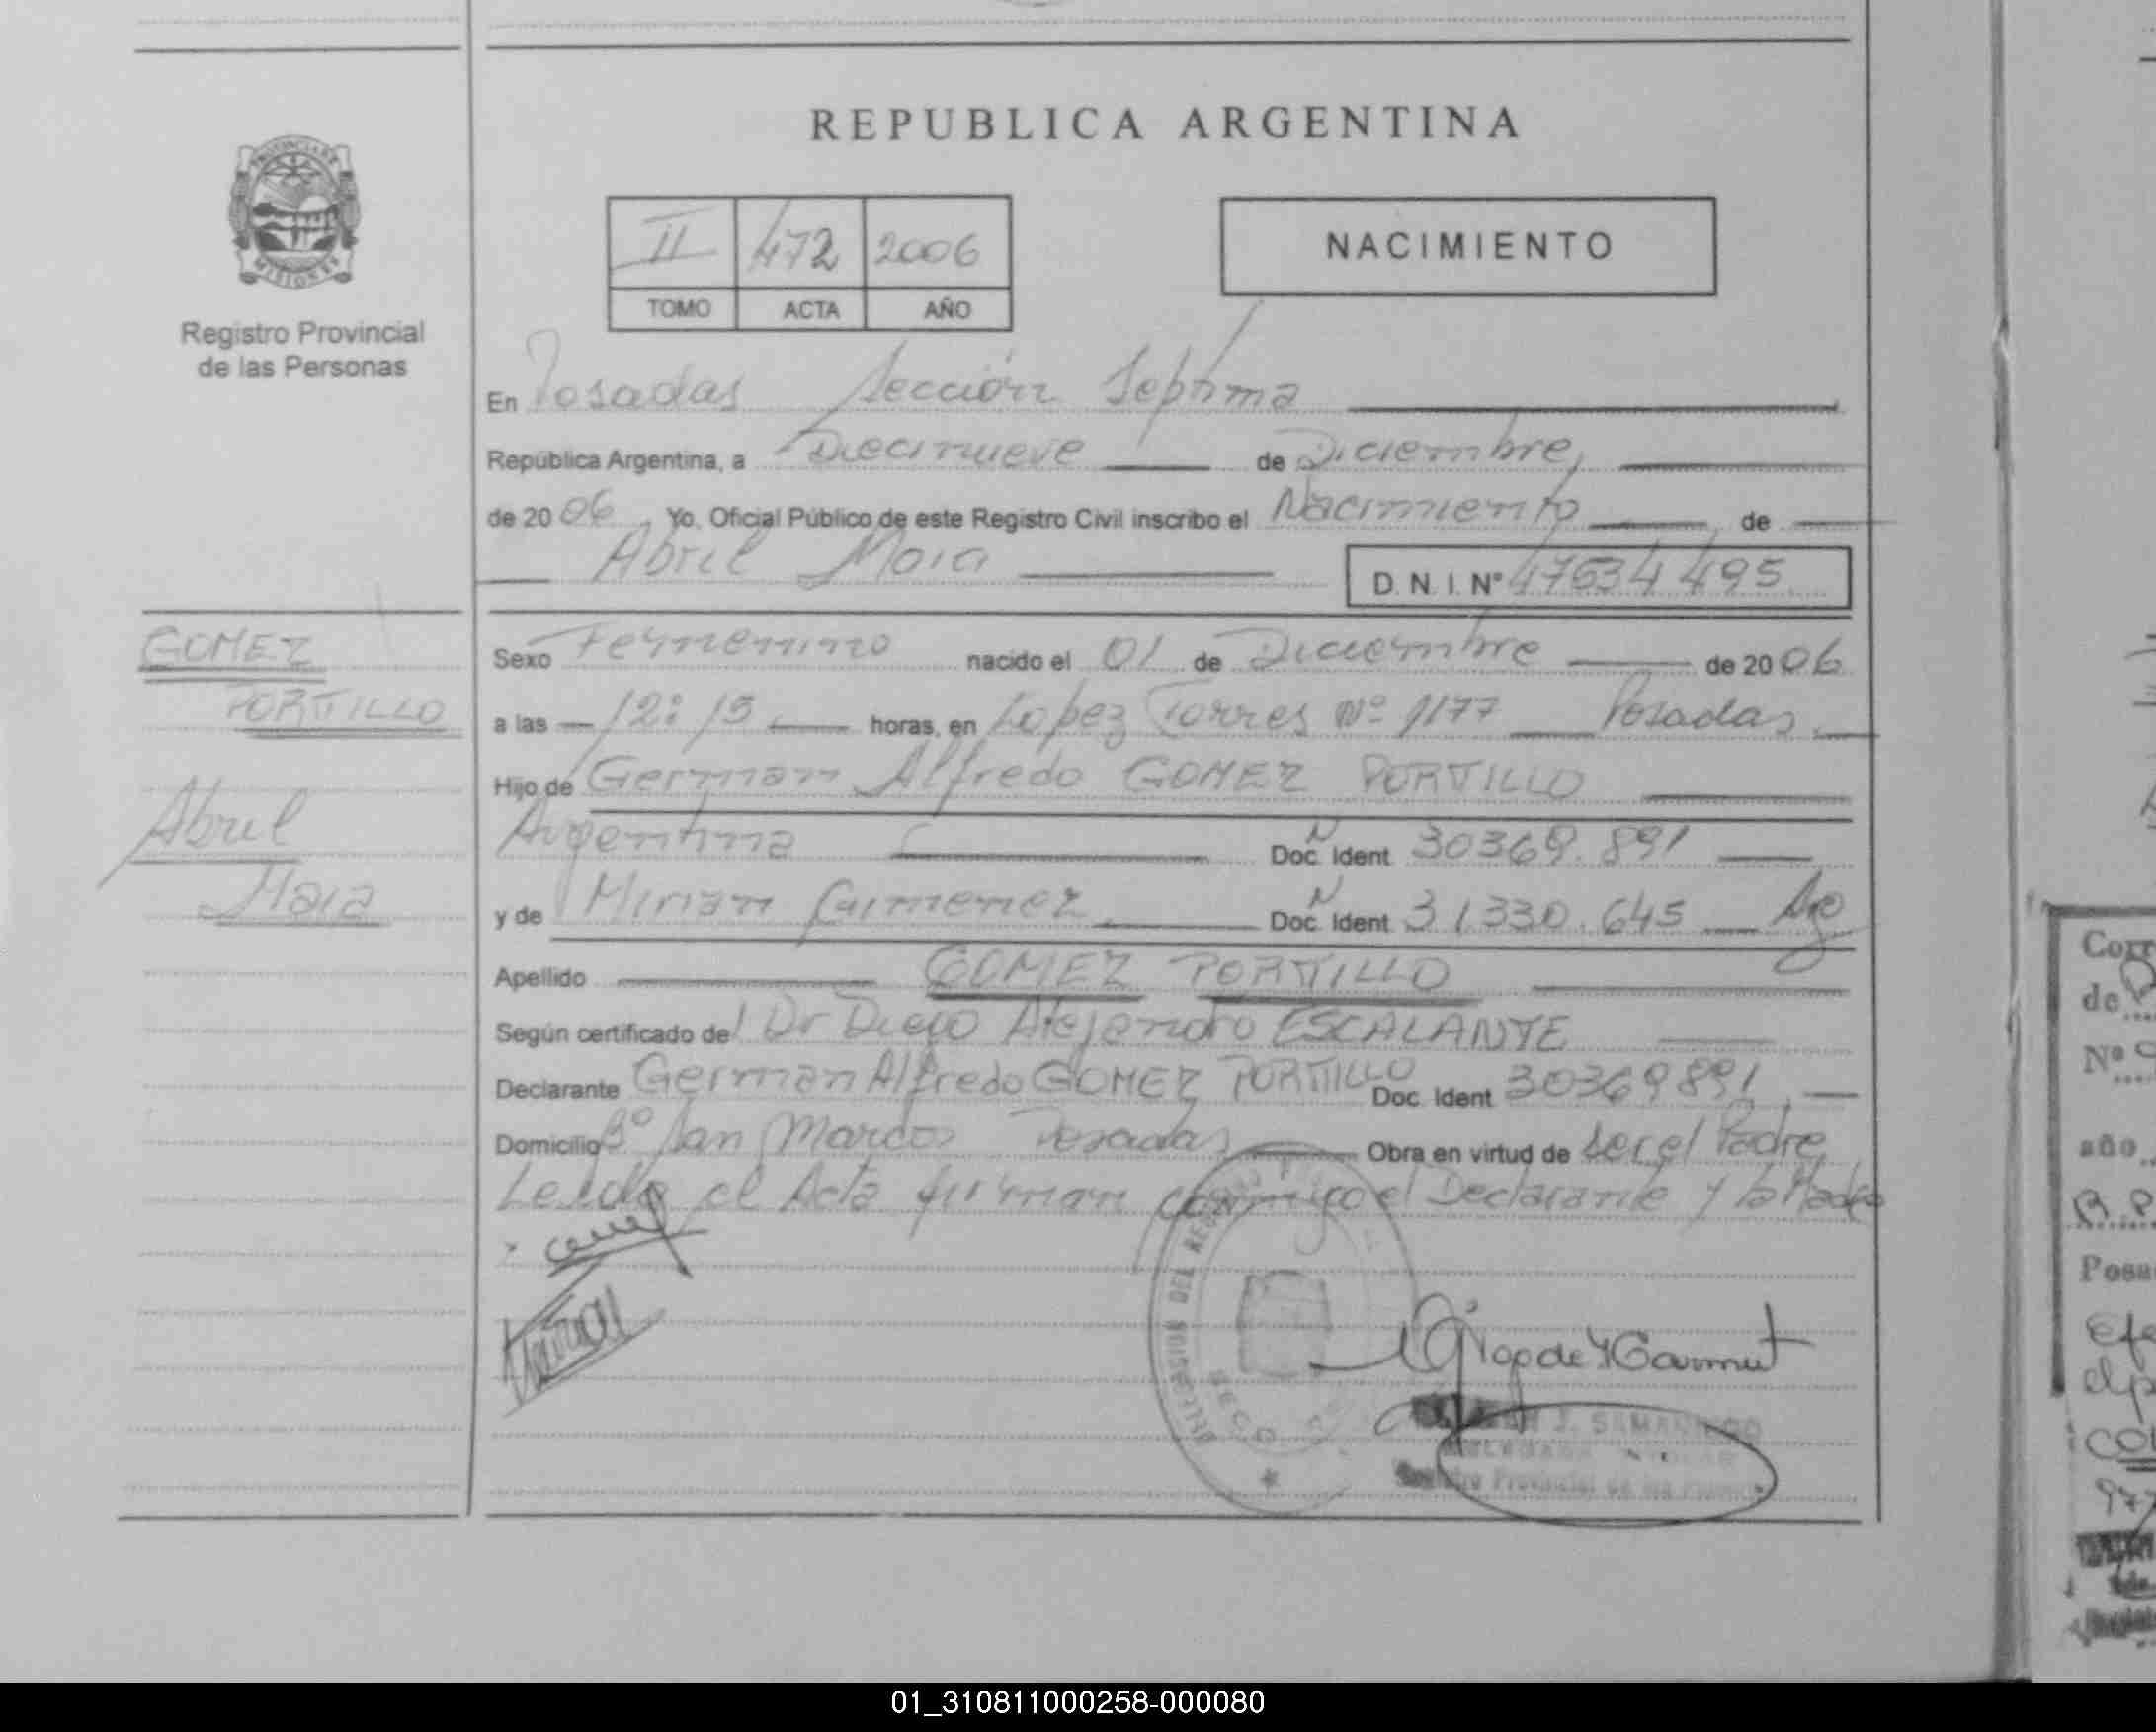 REPUBLICA ARGENTINA
PROVINCIA DE
MISIONES
Registro Provincial
de las Personas
II 472 2006
TOMO ACTA AÑO
NACIMIENTO
En Posadas Sección Septima
República Argentina, a Diecinueve de Diciembre,
de 2006, Yo, Oficial Público de este Registro Civil inscribo el Nacimiento de
Abril Maia
D. N. I. Nº 47634 495
GOMEZ
PORTILLO
Abril
Maia
Sexo Femenino nacido el 01 de Diciembre de 2006
a las 12:15 horas, en Lopez Torres Nº 1177 Posadas.
Hijo de German Alfredo GOMEZ PORTILLO
Argentina Doc. Ident. N 30369.891
y de Miriam Gimenez Doc. Ident. N 31330.645 Arg
Apellido GOMEZ PORTILLO
Según certificado del Dr Diego Alejandro ESCALANTE
Declarante German Alfredo GOMEZ PORTILLO Doc. Ident. 30369891
Domicilio Bº San Marcos Posadas Obra en virtud de ser el Padre
Leida el Acta firman conmigo el Declarante y la Madre
DEL
SECC
J. SAMANIEGO
Registro Provincial de las Personas
Corr
de
Nº
año
Posa
01_310811000258-000080